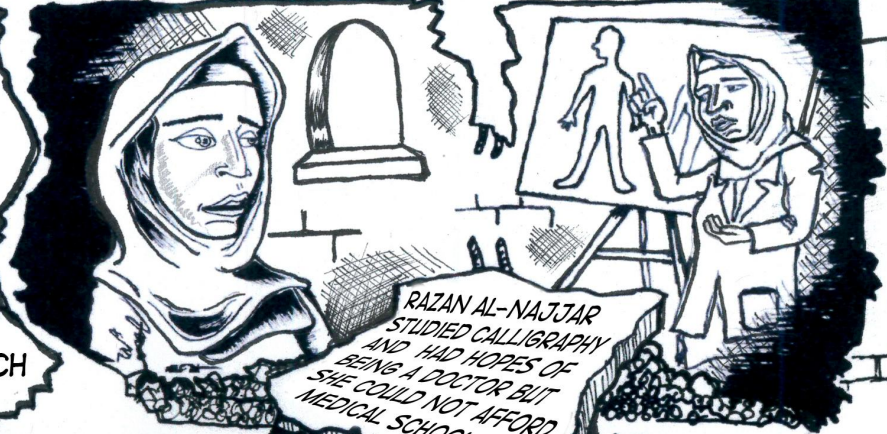 CH
RAZAN AL-NAJJAR
STUDIED CALLIGRAPHY
AND HAD HOPES OF
BEING A DOCTOR BUT
SHE COULD NOT AFFORD
MEDICAL SCHOOL